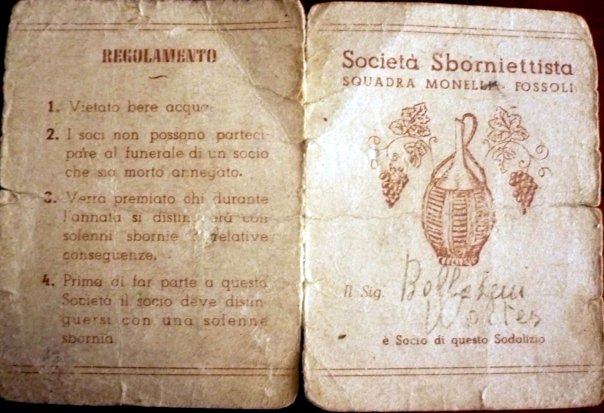 REGOLAMENTO
1. Vietato bere acqua.
2. I soci non possono parteci-
pare al funerale di un socio
che sia morto annegato.
3. Verrà premiato chi durante
l'annata si distinguerà con
solenni sbornie e relative
conseguenze.
4. Prima di far parte a questa
Società il socio deve distin-
guersi con una solenne
sbornia.
Società Sborniettista
SQUADRA MONELLI - FOSSOLI
Il Sig.
Walter
è Socio di questo Sodalizio